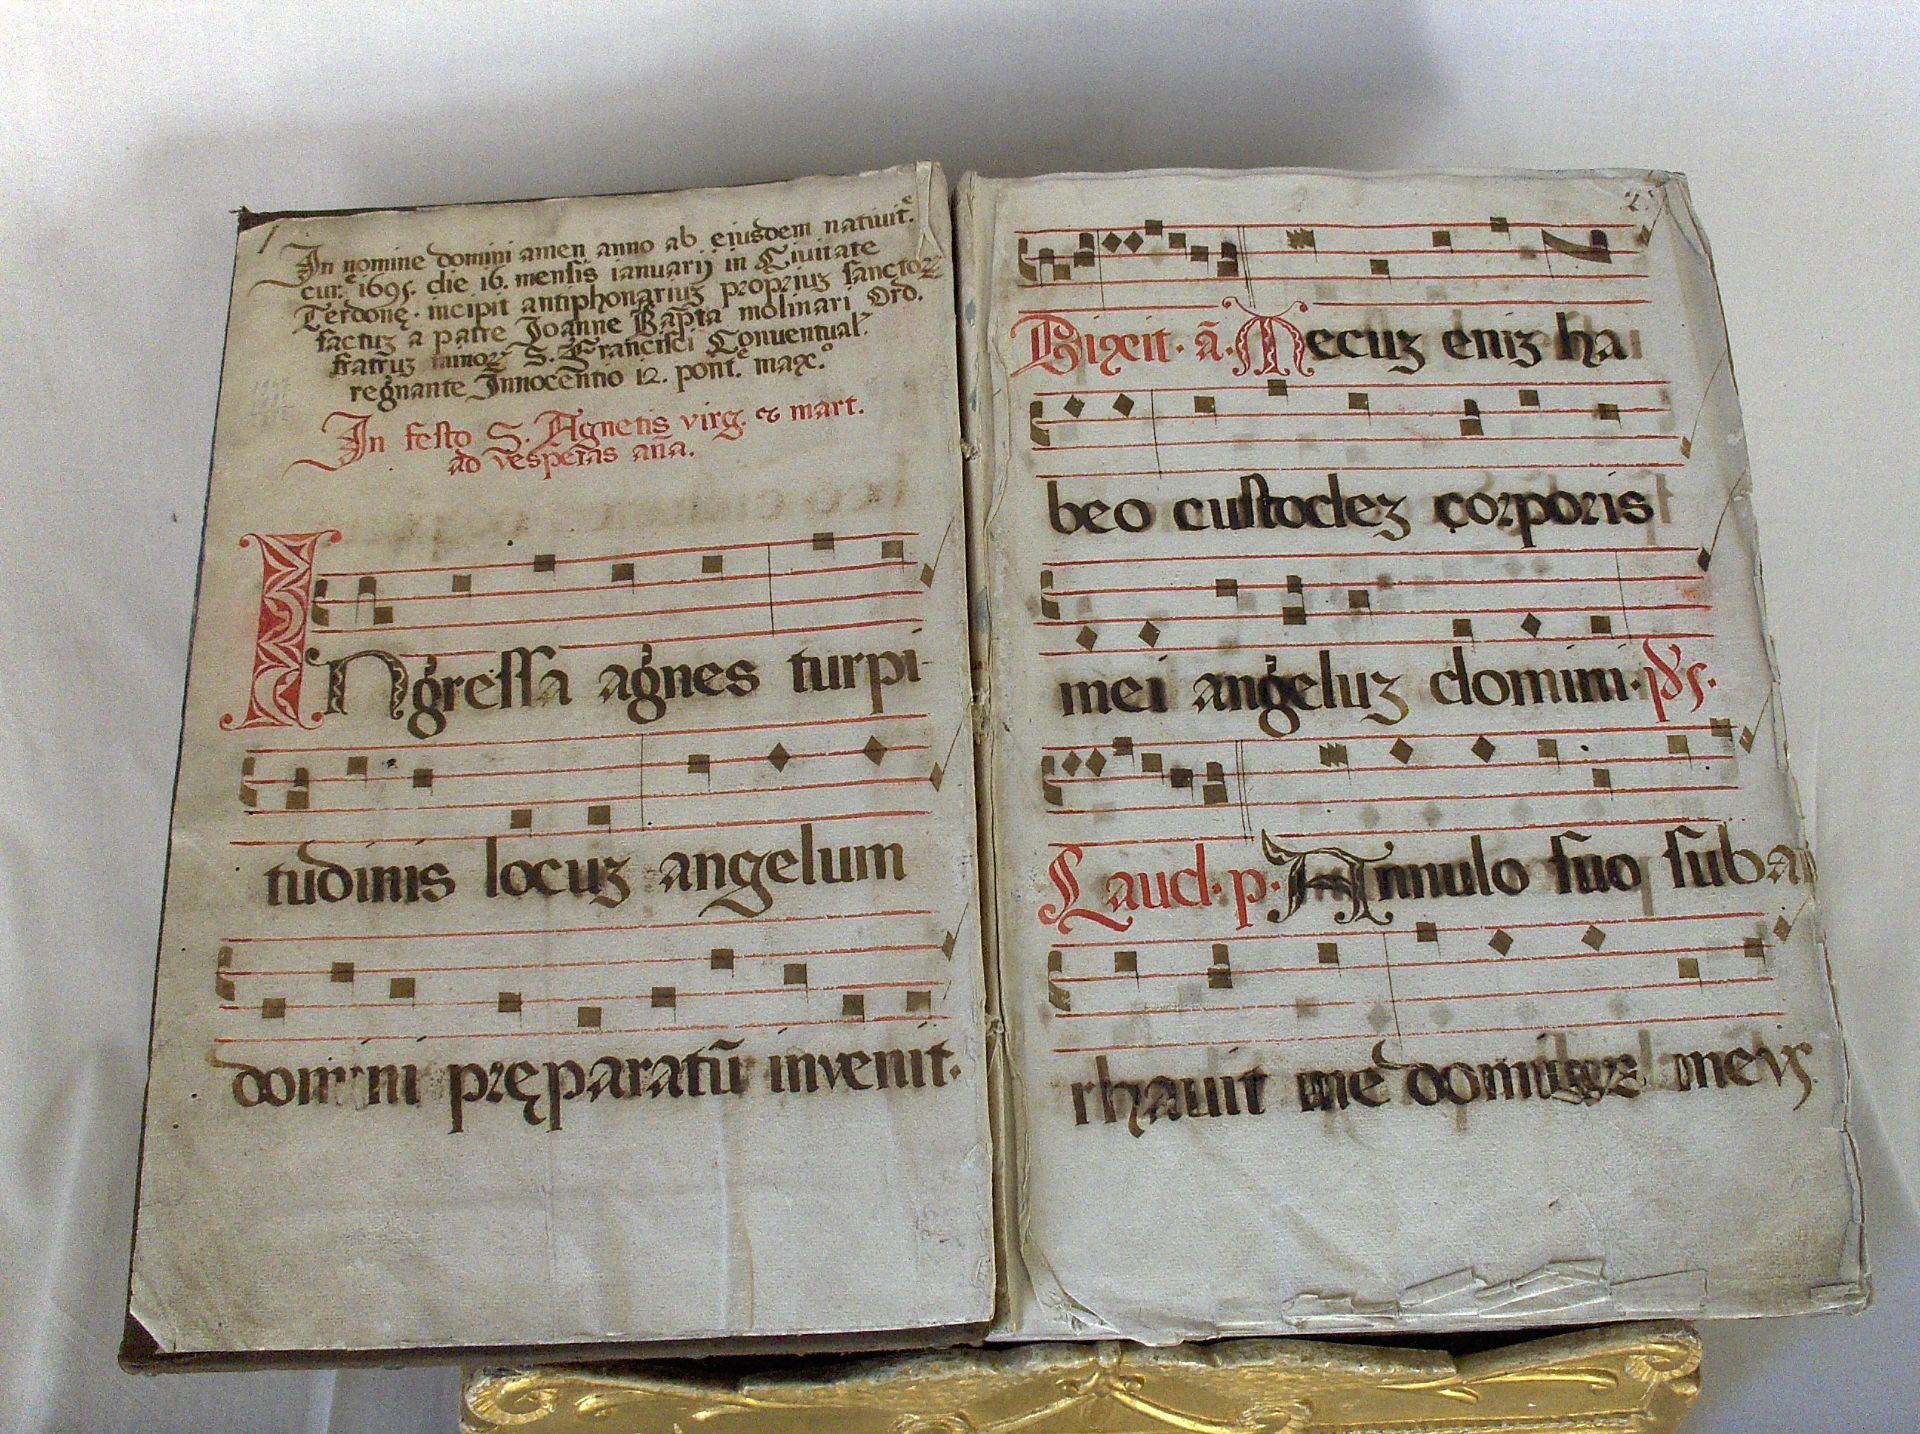 1
In nomine domini amen anno ab ejusdem nativit.e
cur.e 1695. die 16. mensis ianuarij in Civitate
Terdonę. incipit antiphonariuz propriuz sanctor
factuz a patre Joanne Bap̃ta molinari Ord.
fratruz minor S. Francisci Conventual.
regnante Innocentio 12. pont.e max.o
In festo S. Agnetis virg. & mart.
ad vesperas añа.
INgressa agnes turpi-
tudinis locuz angelum
domini pręparatũ invenit.
2
Dixit. ã. Mecuz eniz ha
beo custodez corporis
mei angeluz domini. p̃s.
Laud. p. Annulo suo suba
rhavit me dominus meus